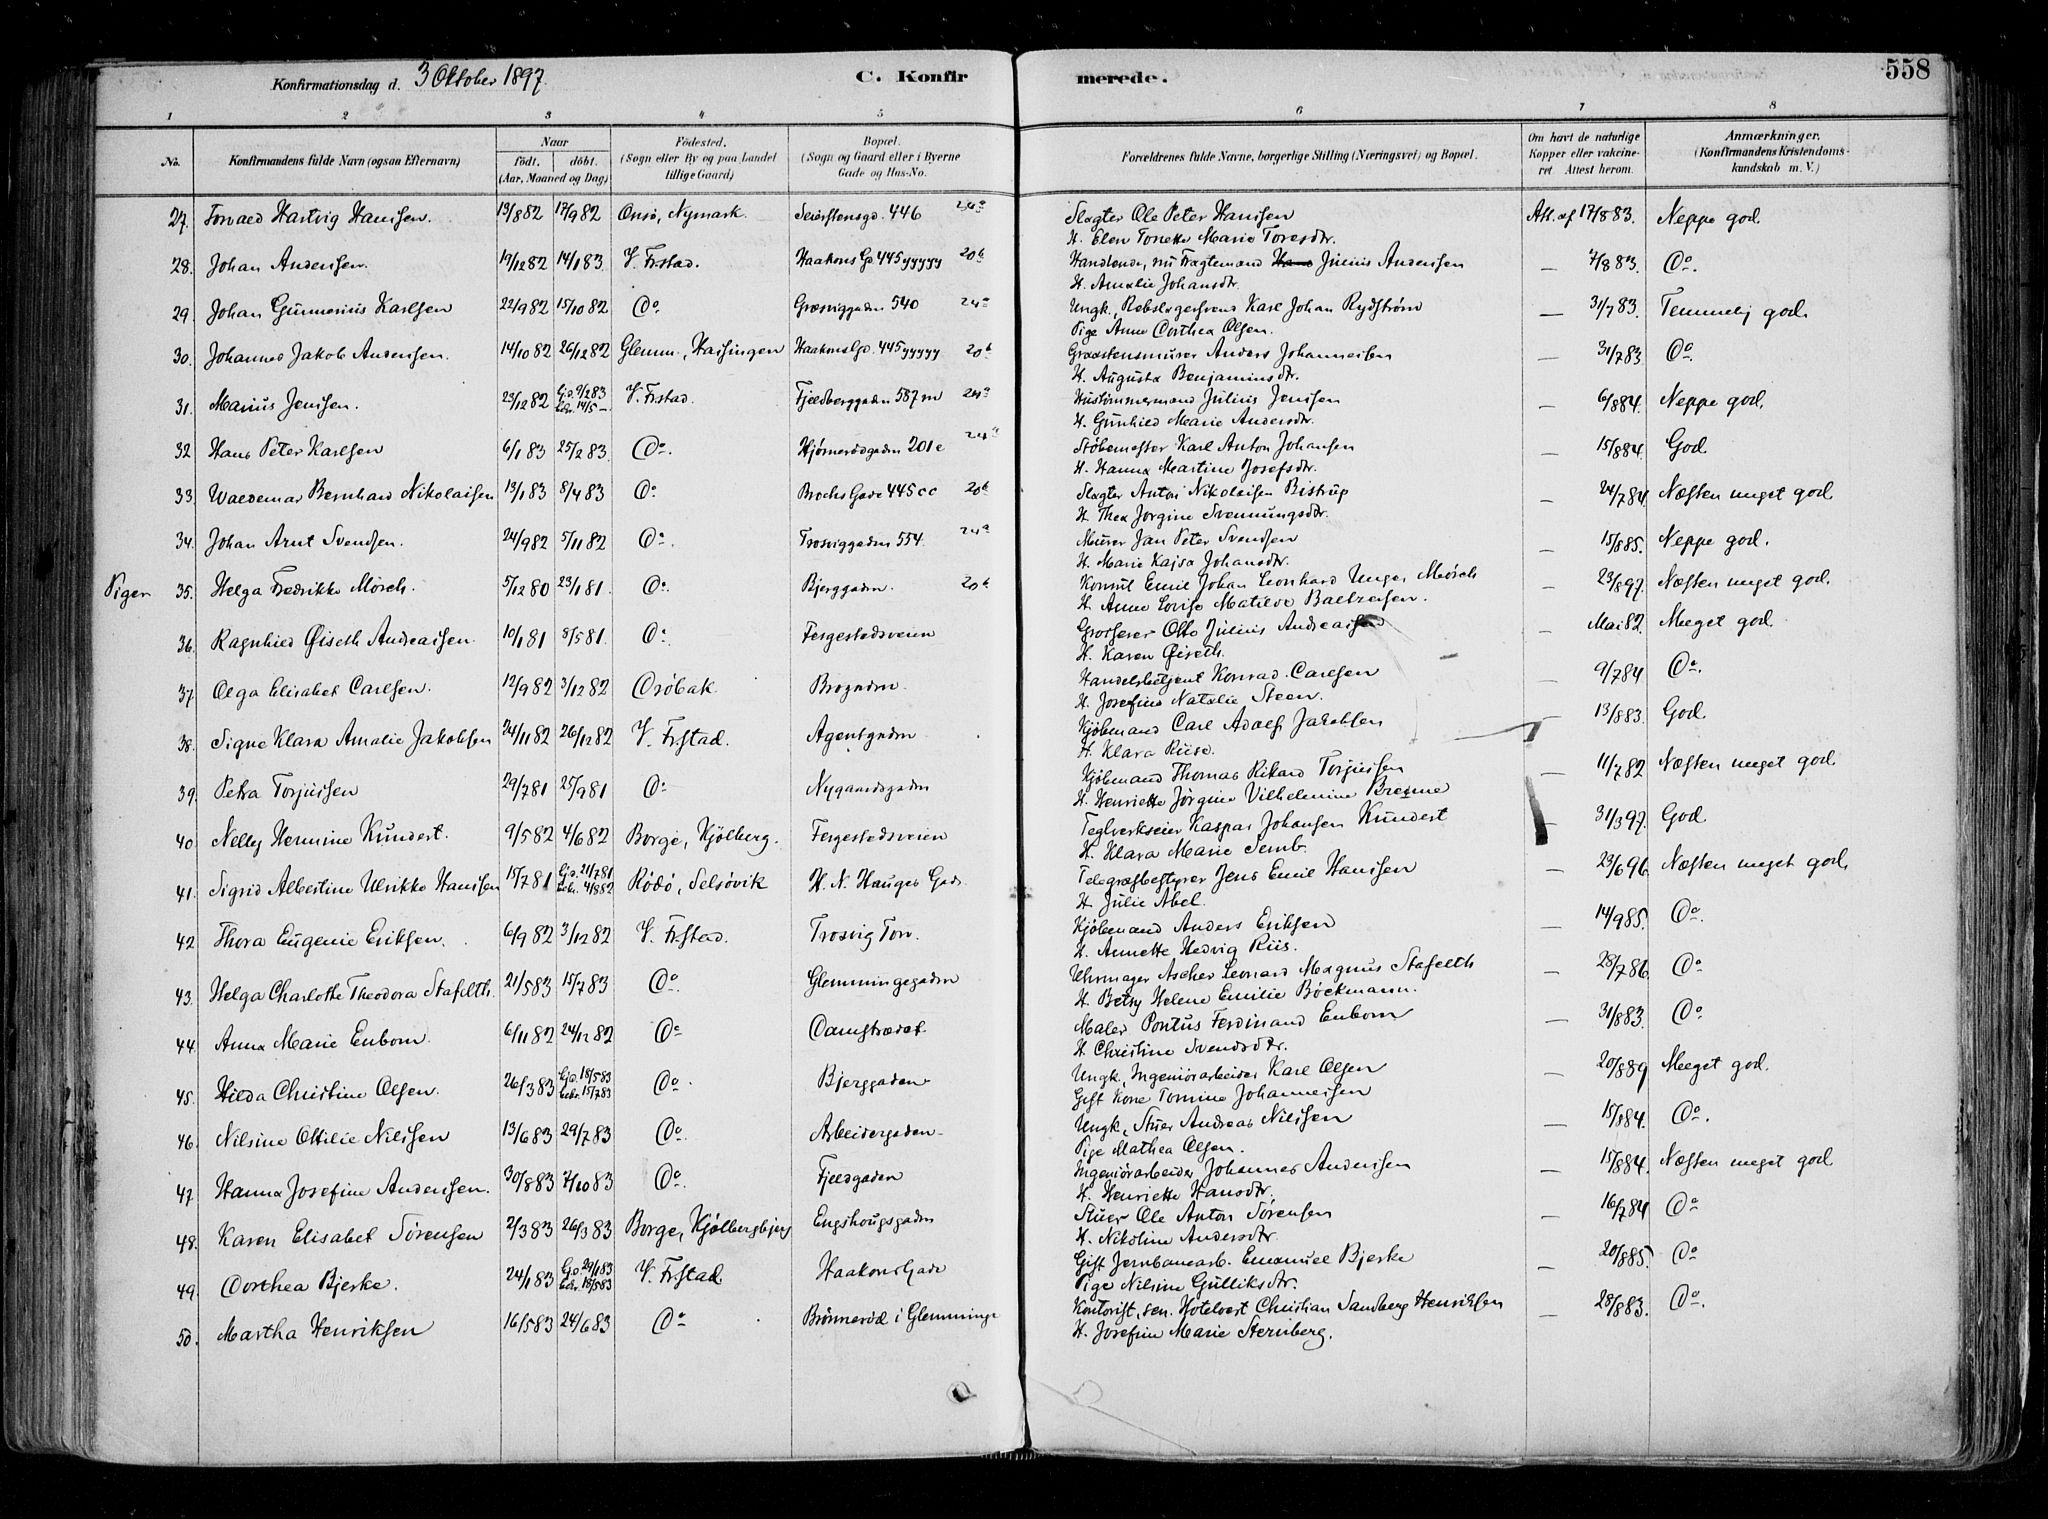 Konfirmationsdag d. 3 Oktober 1897. C. Konfirmerede. 558
1 2 3 4 5 6 7 8
No. Konfirmandens fulde Navn (ogsaa Efternavn) Naar født. døbt. (Aar, Maaned og Dag) Fødested. (Sogn eller By og paa Landet tillige Gaard) Bopæl. (Sogn og Gaard eller i Byerne Gade og Hus-No. Forældrenes fulde Navne, borgerlige Stilling (Næringsvei) og Bopæl. Om havt de naturlige Kopper eller vakcineret. Attest herom. Anmærkninger. (Konfirmandens Kristendomskundskab m. V.)
27. Torvald Hartvig Hanssen. 13/8 82 17/9 82 Onsø, Nymark. 446 24a Slagter Ole Peter Hanssen Att. af 17/8 83. Neppe god.
H. Elen Tonette Marie Toresdtr.
28. Johan Anderssen. 19/12 82 14/1 83. V. Frstad. Haakons Gd 445yyyyy 20b Handlende, nu Fragtemand Julius Anderssen — 7/8 83. Do.
H. Amalie Johansdtr.
29. Johan Gunnerius Karlsen 22/9 82 15/10 82 Do. Græsviggaden 540 24a Ungk., Rebslagersvend Karl Johan Rydstrøm — 31/7 83. Temmelig god.
Pige Anne Dorthea Olsen.
30. Johannes Jakob Anderssen. 14/10 82 26/12 82 Glemm., Hassingen Haakons Gd. 445yyyyy 20b Graastensmurer Anders Johannessen — 31/7 83 Do.
H. Augusta Benjaminsdtr.
31. Marius Jenssen. 23/12 82 Hjd. 9/2 83 bekr. 14/5 — V. Frstad. Fjeldberggaden 587m 24a Hustømmermand Julius Jenssen — 6/8 84. Neppe god.
H. Gunhild Marie Andersdtr.
32 Hans Peter Karlsen 6/1 83 25/2 83. Do. Hjørnerødgaden 201e 24a Støbemester Karl Anton Johansen — 15/8 84. God
H. Hanna Martine Josefsdtr.
33. Waldemar Bernhard Nikolaisen 13/1 83 8/4 83 Do Brochs Gade 445cc 20b Slagter Anton Nikolaisen Bistrup — 24/7 84. Næsten meget god.
H. Thea Jørgine Svennungsdtr.
34. Johan Arnt Svendsen. 24/9 82 5/11 82 Do. Trosviggaden 554. 24a Murer Jan Peter Svendsen — 15/8 85. Neppe god.
H. Marie Kajsa Johansdtr.
Piger 35. Helga Fredrikke Mørch. 5/12 80 23/1 81. Do. Bjerggaden. 20b Konsul Emil Johan Leonhard Unger Mørch — 23/8 97. Næsten meget god.
H. Anne Lovise Matilde Baltzersen.
36. Ragnhild Øiseth Andreassen. 10/1 81 8/5 81. Do. Fergestedsveien Grosserer Otto Julius Andreassen — Mai 82. Meget god.
H. Karen Øiseth.
37. Olga Elisabet Carlsen. 12/9 82 3/12 82 Drøbak Brogaden. Handelsbetjent Konrad Carlsen — 9/7 84 Do.
H. Josefine Natalie Steen.
38. Signe Klara Amalie Jakobsen 24/11 82 26/12 82 V. Frstad. Agentgaden Kjøbmand Carl Adolf Jakobsen — 13/8 83. God.
H. Klara Riise.
39. Petra Torjussen 29/7 81 25/9 81 Do Nygaardsgaden Kjøbmand Thomas Rikard Torjussen — 11/7 82 Næsten meget god.
H. Henriette Jørgine Vilhelmine Breume
40. Nelly Hermine Kundert. 9/5 82 4/6 82 Borge, Kjølberg. Fergestedsveien Teglverkseier Kaspar Johansen Kundert — 31/3 97. God.
H. Klara Marie Semb.
41. Sigrid Albertine Ulrikke Hanssen 15/7 81 Hjd. 21/7 81 bekr. 4/8 82 Rødø, Selsøvik H. N. Hauges Gade. Telegrafbestyrer Jens Emil Hanssen — 23/6 96. Næsten meget god.
H. Julie Abel.
42. Thora Eugenie Eriksen. 6/9 82 3/12 82 V. Frstad. Trosvig Torv. Kjøbmand Anders Eriksen — 14/9 85. Do.
H. Annette Hedvig Riis.
43. Helga Charlotte Theodora Stafelth. 21/5 83 15/7 83 Do. Glemmingegaden Uhrmager Ascher Leonard Magnus Stafelth — 28/7 86. Do
H. Betsy Helene Emilie Bøckmann.
44. Anna Marie Enbom. 6/11 82 24/12 82 Do Damstrædet Maler Pontus Ferdinand Enbom — 31/8 83. Do
H. Christine Svendsdtr.
45. Hilda Christine Olsen. 26/3 83 Hjd. 18/5 83 bekr. 15/7 83 Do. Bjerggaden Ungk, Ingeniørarbeider Karl Olsen — 20/8 89 Meget god.
Gift Kone Tomine Johannessen
46. Nilsine Ottilie Nilssen 13/6 83 29/7 83 Do. Arbeidergaden Ungk, Stuer Andreas Nilssen — 15/8 84. Do.
Pige Mathea Olsen.
47. Hanna Josefine Anderssen. 30/8 83 7/10 83 Do. Fjeldgaden Ingeniørarbeider Johannes Anderssen — 15/8 84. Næsten meget god
H. Henriette Hansdtr.
48. Karen Elisabet Sørensen 2/3 83 26/3 83 Borge, Kjølbergbjerg Engshougsgaden Stuer Ole Anton Sørensen — 16/7 84 Do
H. Nikoline Andersdtr.
49. Dorthea Bjerke. 24/1 83 Hjd. 29/1 83 bekr. 18/5 83 V. Frstad. Haakons Gade Gift Jernbanearb. Emanuel Bjerke — 20/8 85. Do
Pige Nilsine Gulliksdtr.
50. Martha Henriksen 16/5 83 24/6 83 Do Brønnerød i Glemminge Kontorist, sen. Hotelvert Christian Sandberg Henriksen — 28/8 83. Do.
H. Josefine Marie Sternberg.